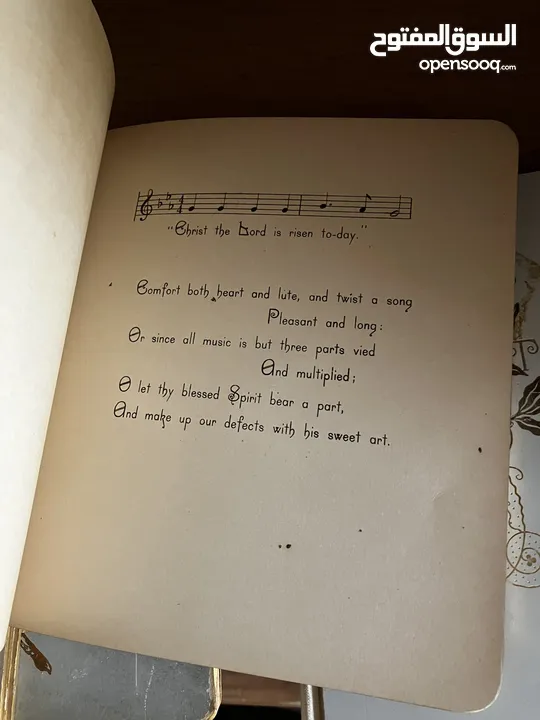 السوق المفتوح
opensooq.com
"Christ the Lord is risen to-day."
Comfort both heart and lute, and twist a song
Pleasant and long:
Or since all music is but three parts vied
And multiplied;
O let thy blessed Spirit bear a part,
And make up our defects with his sweet art.